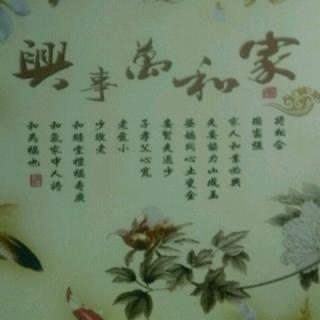 家和萬事興
將相合
國富強
家人和業始興
夫妻協力山成玉
婆媳同心土變金
妻賢夫過少
子孝父心寬
老愛小
少敬老
和睦堂禮福壽廣
和氣家中人誇
和為福也